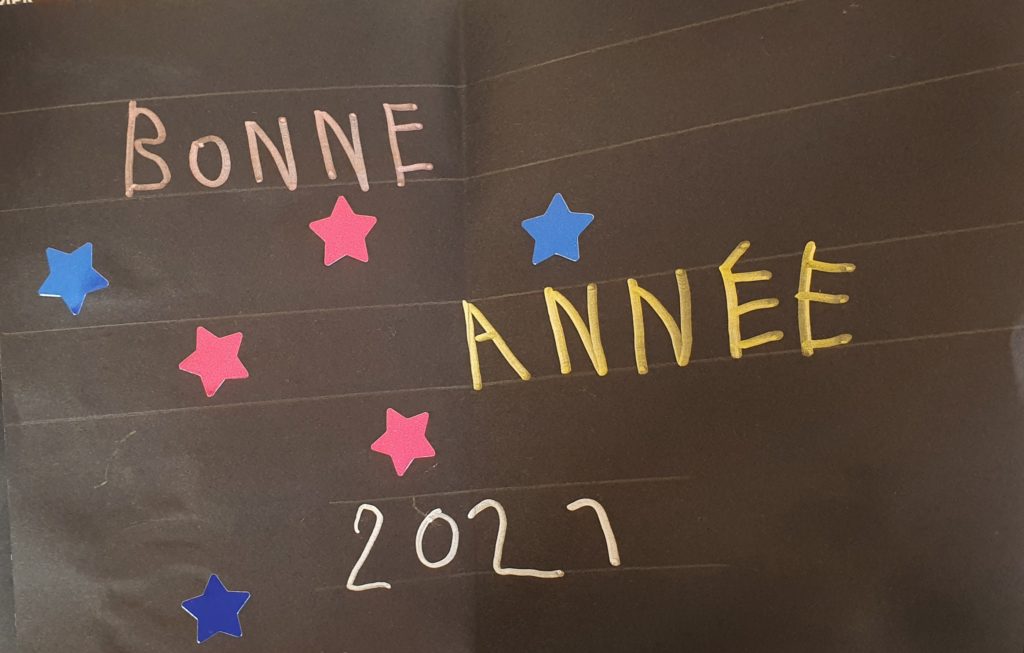 BONNE
ANNÉE
2021